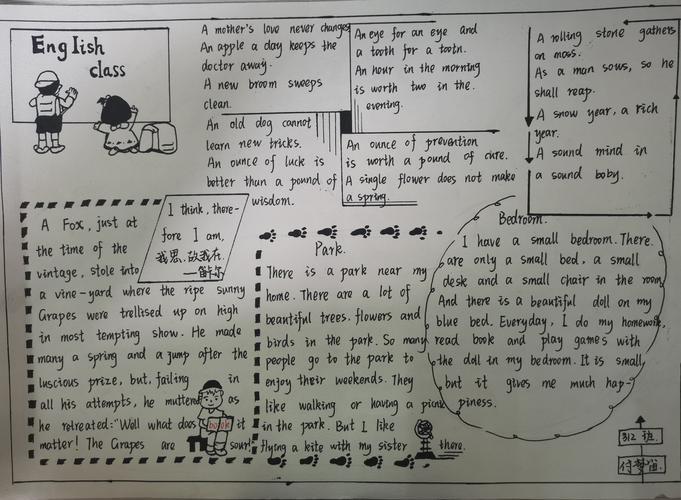 English
class
A mother's love never changes
An apple a day keeps the
doctor away.
A new broom sweeps
clean.
An old dog cannot
learn new tricks.
An ounce of luck is
better than a pound of
wisdom.
An eye for an eye and
a tooth for a tooth.
An hour in the morning
is worth two in the.
evening.
An ounce of prevention
is worth a pound of cure.
A single flower does not make
a spring.
A rolling stone gathers
on moss.
As a man sows, so he
shall reap.
A snow year, a rich
year.
A sound mind in
a sound boby.
A Fox, just at
the time of the
vintage, stole into
a vine-yard where the ripe sunny
Grapes were trellised up on high
in most tempting show. He made
many a spring and a jump after the
luscious prize, but, failing in
all his attempts, he muttered as
he retreated: "Well what does it
matter! The Grapes are sour!"
book
I think, there-
fore I am,
我思,故我在.
——笛卡尔
Park.
There is a park near my
home. There are a lot of
beautiful trees. flowers and
birds in the park. So many
people go to the park to
enjoy their weekends. They
like walking or having a picnic
in the park. But I like
flying a kite with my sister there.
Bedroom.
I have a small bedroom. There.
are only a small bed, a small
desk and a small chair in the room
And there is a beautiful doll on my
blue bed. Everyday, I do my homework,
read book and play games with
the doll in my bedroom. It is small,
but it gives me much hap-
piness.
312 班